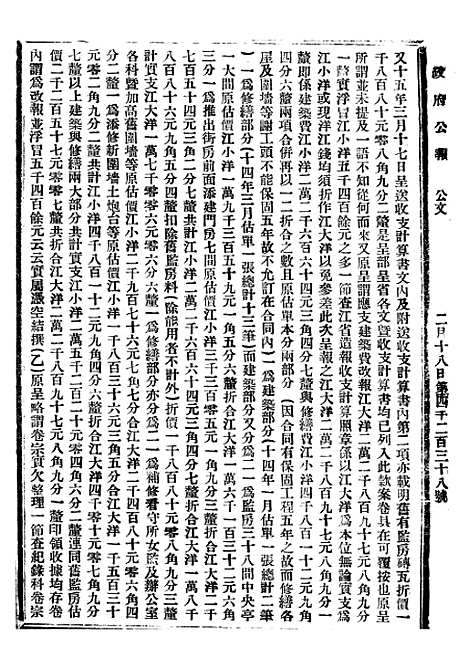 政府公報　公文
二月十八日第四千二百三十八號
又十五年三月十七日呈送收支計算書文內及附送收支計算書內第二項亦載明舊有監房磚瓦折價一
千八百八十六元九角八分九分二釐是呈部呈省各文暨收支計算書均已列入此款案卷具在可覆按也原呈
所謂並未提及一語不知從何而來又原呈謂應支建築費改報江大洋二萬二千八百九十七元八角九分
一釐實浮冒江小洋五千四百餘元之多一節查江省造報收支計算照章係以江大洋爲本位無論實支爲
江小洋或現洋江錢均須折作江大洋以免參差此次呈報之江大洋二萬二千八百九十七元八角九分一
釐即係建築費江小洋二萬二千六百六十三元三角四分七釐與修繕費江小洋四千八百一十二元九角
四分六釐兩項合併再以一二折合之數且原估單本分兩部分（因合同有保固工程五年之故而修繕各
屋及圍墻等鬪工頭不能保固五年故不允訂在合同內）一爲建築部分（十四年一月估單）一張總計二筆
一爲修繕部分（十四年三月估單）一張總計十三筆）而建築部分又分爲二一爲監房三十八間中央亭
一大間原估價江小洋一萬九千三百五十九元一角五分六釐折合江大洋一萬六千一百三十二元六角
三分一爲推出街房前面添建門房七間原估價江小洋三千三百零五元一角九分一釐折合江大洋二千
七百五十四元三角二分五釐二共計江小洋二萬二千六百六十三元三角四分七釐折合江大洋一萬八千
八百八十六元九角五分四釐扣除舊監房料（除能用者不計外）折價一千八百八十六元九角八分二釐
計實支江大洋一萬七千零零六元零六分六釐一爲修繕部分亦分爲二一爲補修看守所女監及辦公室
各科暨加高舊圍墻等原估價江小洋二千九百七十六元七角七分七釐折合江大洋二千四百八十元零六
分二釐一爲添修新圍墻土炮台等原估價江小洋一千八百三十六元三角五分合江大洋一千五百三十
元零二角九分二釐共計江小洋四千八百一十二元九角四分六釐折合江大洋四千零一十元零七角九分
七釐以上建築與修繕兩大部分共計實支江小洋二萬五千二百一十二元零四角六分二釐連同舊監房估
價二千二百五十七元七角零共折合江大洋二萬二千八百九十七元八角九分一釐印領收據均存卷
內謂爲改報並浮冒五千四百餘元云云實屬憑空結撰（乙）原呈略謂卷宗實欠整理一節查紀錄科卷宗